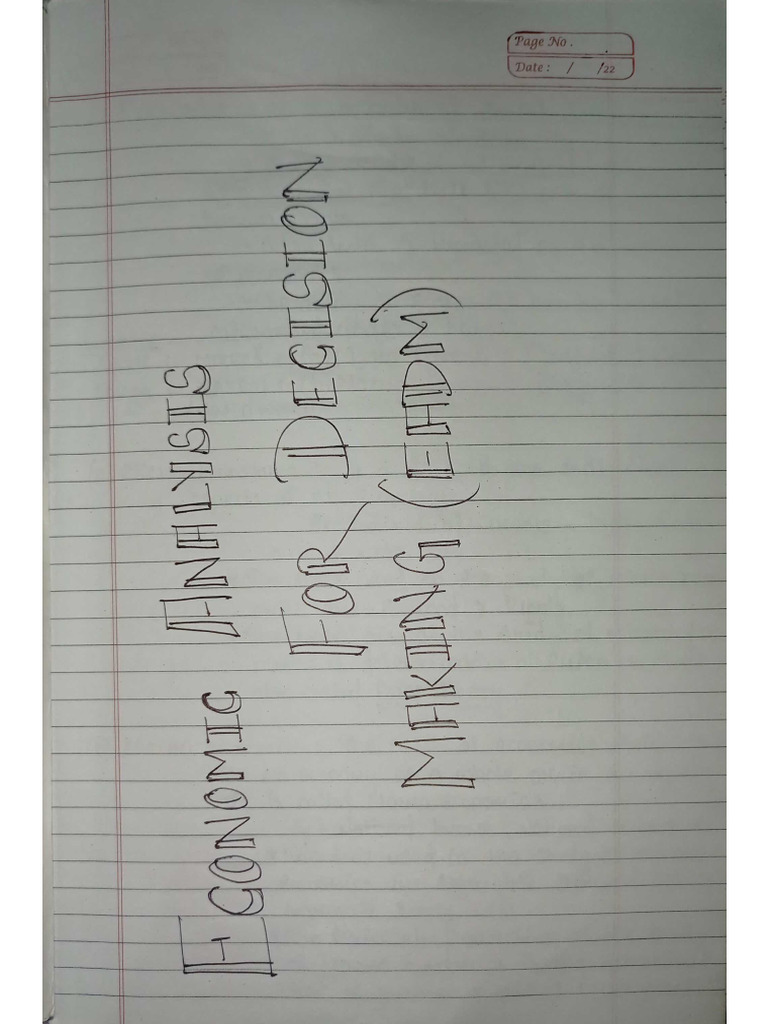 Page No.
Date: / /22
ECONOMIC ANALYSIS
FOR DECISION
MAKING (EADM)